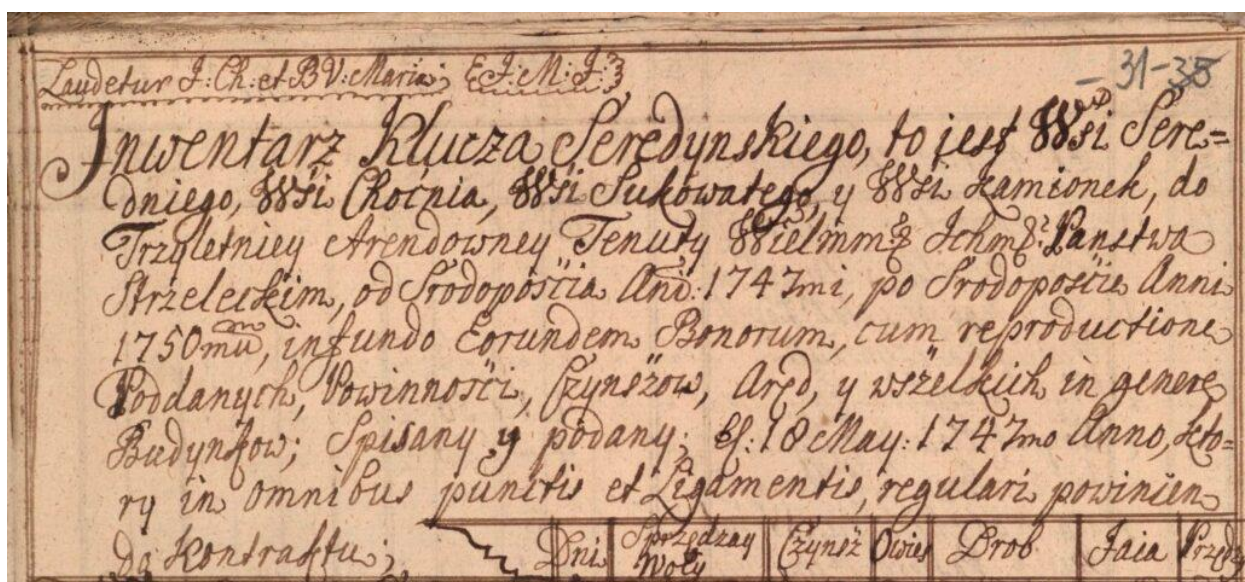 Laudetur J: Ch: et B V: Maria; E J: M: J:
- 31 - 35
Inwentarz Klucza Seredynskiego, to jest Wsi Sere=
dniego, Wśi Choćnia, Wśi Sukowatego y Wśi Kamionek, do
Trzyletniey Arendowney Tenuty Wielmm Ichm Panstwa
Strzeleckim, od Srodopośćia Anō: 1747mi, po Srodopośćie Anni
1750mu, in fundo Eorundem Bonorum, cum reproductione
Poddanych, Powinnośći, Czynszow, Aręd, y wszelkich in genere
Budynkow; Spisany y podany; 18 May: 1747mo Anno, kto=
ry in omnibus punctis et Ligamentis, regulari powinien
do Kontraktu;
Dni Sprzężay Woły Czynsz Owies Drob Jaia Przędz